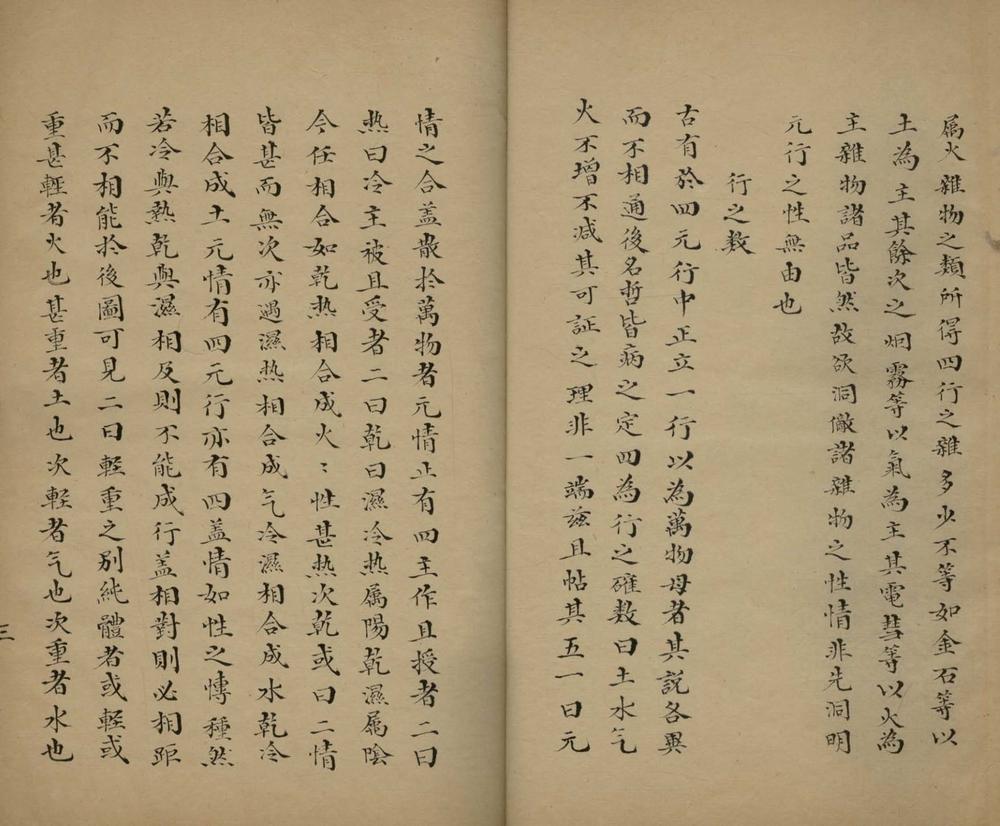 属火雜物之類所得四行之雜多少不等如金石等以
土為主其餘次之烟霧等以氣為主其電彗等以火為
主雜物諸品皆然故欲洞儆諸雜物之性情非先洞明
元行之性無由也
行之数
古有於四元行中正立一行以為萬物母者其説各異
而不相通後名哲皆病之定四為行之確数曰土水气
火不增不减其可証之理非一端茲且帖其五一曰元
情之合盖散於萬物者元情止有四主作且授者二曰
热曰冷主被且受者二曰乾曰濕冷热属陽乾濕属陰
今任相合如乾热相合成火〻性甚热次乾或曰二情
皆甚而無次亦遇濕热相合成气冷濕相合成水乾冷
相合成土元情有四元行亦有四盖情如性之慱種然
若冷與熱乾與濕相反則不能成行盖相對則必相距
而不相能於後圖可見二曰輕重之别純體者或輕或
重甚輕者火也甚重者土也次輕者气也次重者水也
三